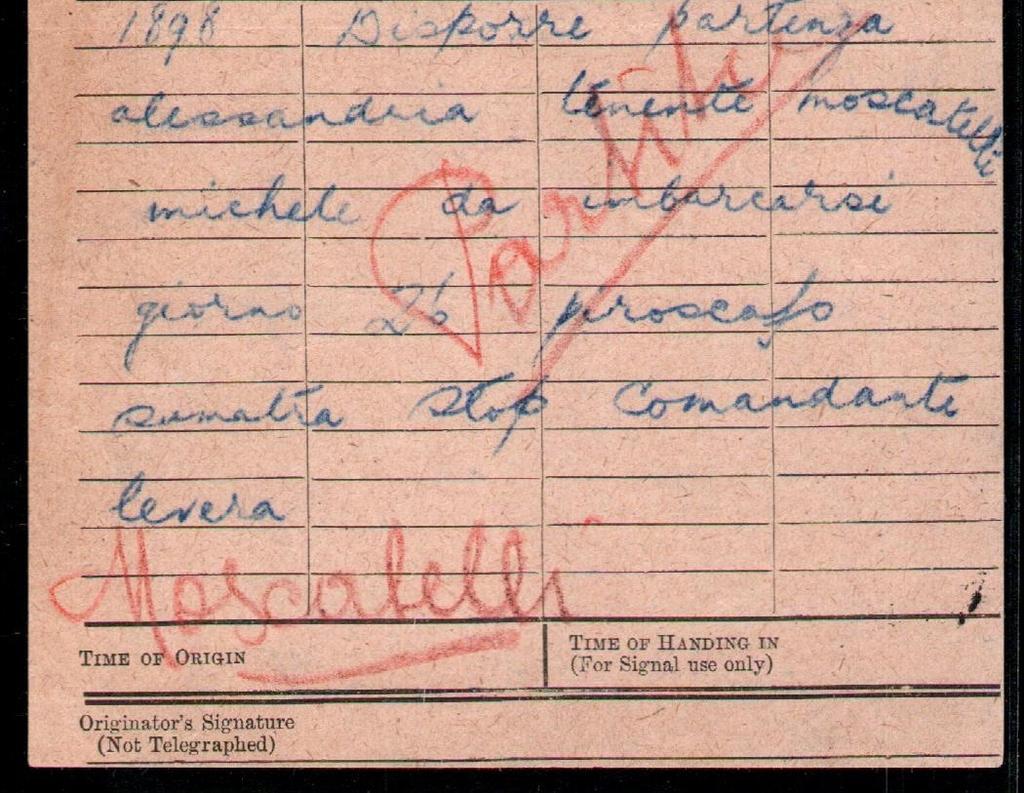 1898 Disporre partenza
alessandria tenente moscatelli
michele da imbarcarsi
giorno 26 piroscafo
sumatra stop Comandante
levera
Partito
Moscatelli
TIME OF ORIGIN
TIME OF HANDING IN
(For Signal use only)
Originator's Signature
(Not Telegraphed)